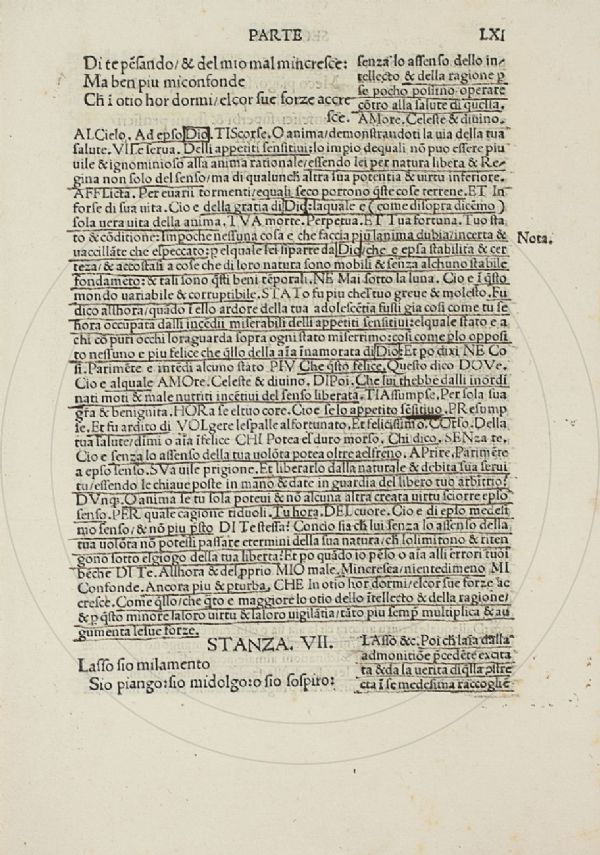 PARTE LXI
Di te pẽsando/& del mio mal mincresce:
Ma ben piu miconfonde
Ch ĩ otio hor dormi/elcor sue forze accre
sce.
senza lo assenso dello in-
tellecto & della ragione p
se pocho possino operare
cõtro alla salute di quella.
AMore. Celeste & diuino.
ALCielo. Ad epso Dio. TIScorse. O anima/demonstrandoti la uia della tua
salute. VILe serua. Delli appetiti sensitiui: lo impio dequali nõ puo essere piu
uile & ignominioso alla anima rationale/essendo lei per natura libera & Re
gina non solo del senso/ma di qualunch altra sua potentia & uirtu inferiore.
AFFLicta. Per euarii tormenti/equali seco portono q̃ste cose terrene. ET In
forse di sua uita. Cio e della gratia di Dio: laquale e (come disopra dicẽmo)
sola uera uita della anima. TVA morte. Perpetua. ET Tua fortuna. Tuo sta
to & cõditione: Impoche nessuna cosa e che faccia piu lanima dubia/incerta &
uaccillãte che elpeccato: p elquale lei si parte da Dio/che e epsa stabilita & cer
teza/& accostasi a cose che di loro natura sono mobili & senza alchuno stabile
fondamẽto: & tali sono q̃sti beni tẽporali. NE Mai sotto la luna. Cio e ĩ q̃sto
mondo uariabile & corruptibile. STATo fu piu che'l tuo greue & molesto. Fu
dico allhora/quãdo ĩ ello ardore della tua adolescẽtia fusti gia cosi come tu se
hora occupata dalli incẽdii miserabili delli appetiti sensitiui: elquale stato e a
chi cõ puri occhi loraguarda sopra ogni stato miserrimo: cosi come plo opposi
to nessuno e piu felice che q̃llo della aĩa ĩnamorata di Dio: Et po dixi NE Co
si. Parimẽte e intẽdi alcuno stato PIV Che q̃sto felice. Questo dico DOVe.
Cio e alquale AMOre. Celeste & diuino. DISpoi. Che lui thebbe dalli inordi
nati moti & male nutriti incẽtiui del senso liberata. TIAssumpse. Per sola sua
gr̃a & benignita. HORa se el tuo core. Cio e se lo appetito sẽsitiuo. PResump
se. Et fu ardito di VOLgere lespalle al fortunato. Et felicissimo. COrso. Della
tua salute/dimi o aĩa ĩfelice CHI Potea el duro morso. Chi dico. SENza te.
Cio e senza lo assenso della tua uolõta potea oltre al freno. APrire. Parimẽte
a epso senso. SVa uile prigione. Et liberarlo dalla naturale & debita sua serui
tu/essendo le chiaue poste in mano & date in guardia del libero tuo arbitrio?
DVnq̃. O anima se tu sola poteui & nõ alcuna altra creata uirtu sciorre epso
senso. PER quale cagione ti duoli. Tu hora. DEL cuore. Cio e di epso medesi
mo senso/& nõ piu p̃sto DI Te stessa? Concio sia ch lui senza lo assenso della
tua uolõta nõ potessi passare etermini della sua natura/ch lo limitono & riten
gono sotto elgiogo della tua liberta? Et po quãdo io pẽso o aĩa alli errori tuoi
bẽche DI Te. Allhora & del p̃prio MIO male. Mincresca/niente dimeno MI
Confonde. Ancora piu & pturba. CHE In otio hor dormi/elcor sue forze ac
cresce. Come q̃llo/che q̃to e maggiore lo otio dello ĩtellecto & della ragione/
& p q̃sto minore laloro uirtu & laloro uigilãtia/tãto piu semp̃ multiplica & au
gumenta lesue forze.
Nota.
STANZA. VII.
Lasso sio milamento
Sio piango: sio midolgo: o sio sospiro:
LASSo &c. Poi ch laĩa dalla
admonitiõe p̃cedẽte excita
ta & da la uerita di q̃lla ƥstre
cta ĩ se medesima raccoglie